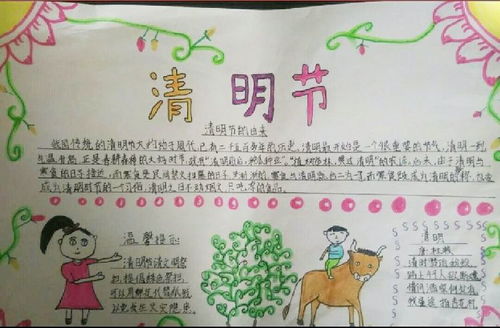 清明节
清明节的由来
我国传统的清明节大约始于周代,已有二千五百多年的历史。清明最开始是一个很重要的节气,清明一到
气温升高,正是春耕春种的大好时节,故有“清明前后,种瓜种豆”。“植树造林,莫过清明”的农谚。后来,由于清明与
寒食的日子接近,而寒食是民间禁火扫墓的日子,渐渐的,寒食与清明就合二为一了,而寒食既成为清明的别称,也变
成为清明时节的一个习俗,清明之日不动烟火,只吃凉的食品。
温馨提示
清明节请文明祭
扫,提倡绿色祭扫,
可以用鲜花代替纸钱,
以免发生火灾隐患。
清明
唐 杜牧
清明时节雨纷纷,
路上行人欲断魂。
借问酒家何处有,
牧童遥指杏花村。